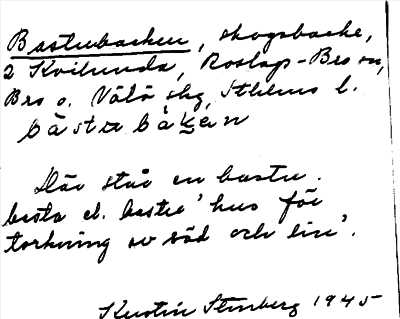 Bastubacken, skogsbacke,
2 Kvilunda, Roslags-Bro sn,
Bro o. Vätö skg, Sthlms l.
bàstubàkən
Där står en bastu.
basta el. bastu 'hus för
torkning av säd och lin'.
Kerstin Stenberg 1945